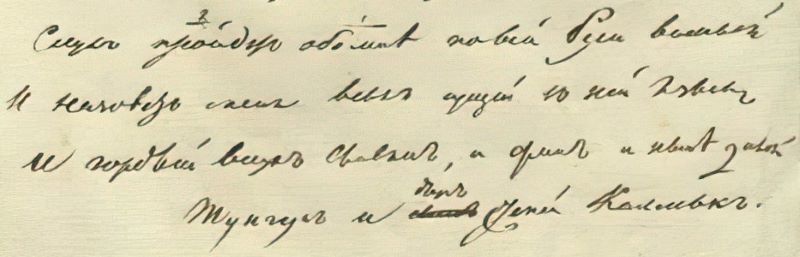 Слухъ пройдетъ обо мнѣ по всей Руси великой
И назоветъ меня всякъ сущій въ ней языкъ
И гордый внукъ Славянъ, и Финъ и нынѣ дикой
Тунгусъ и другъ степей Калмыкъ.